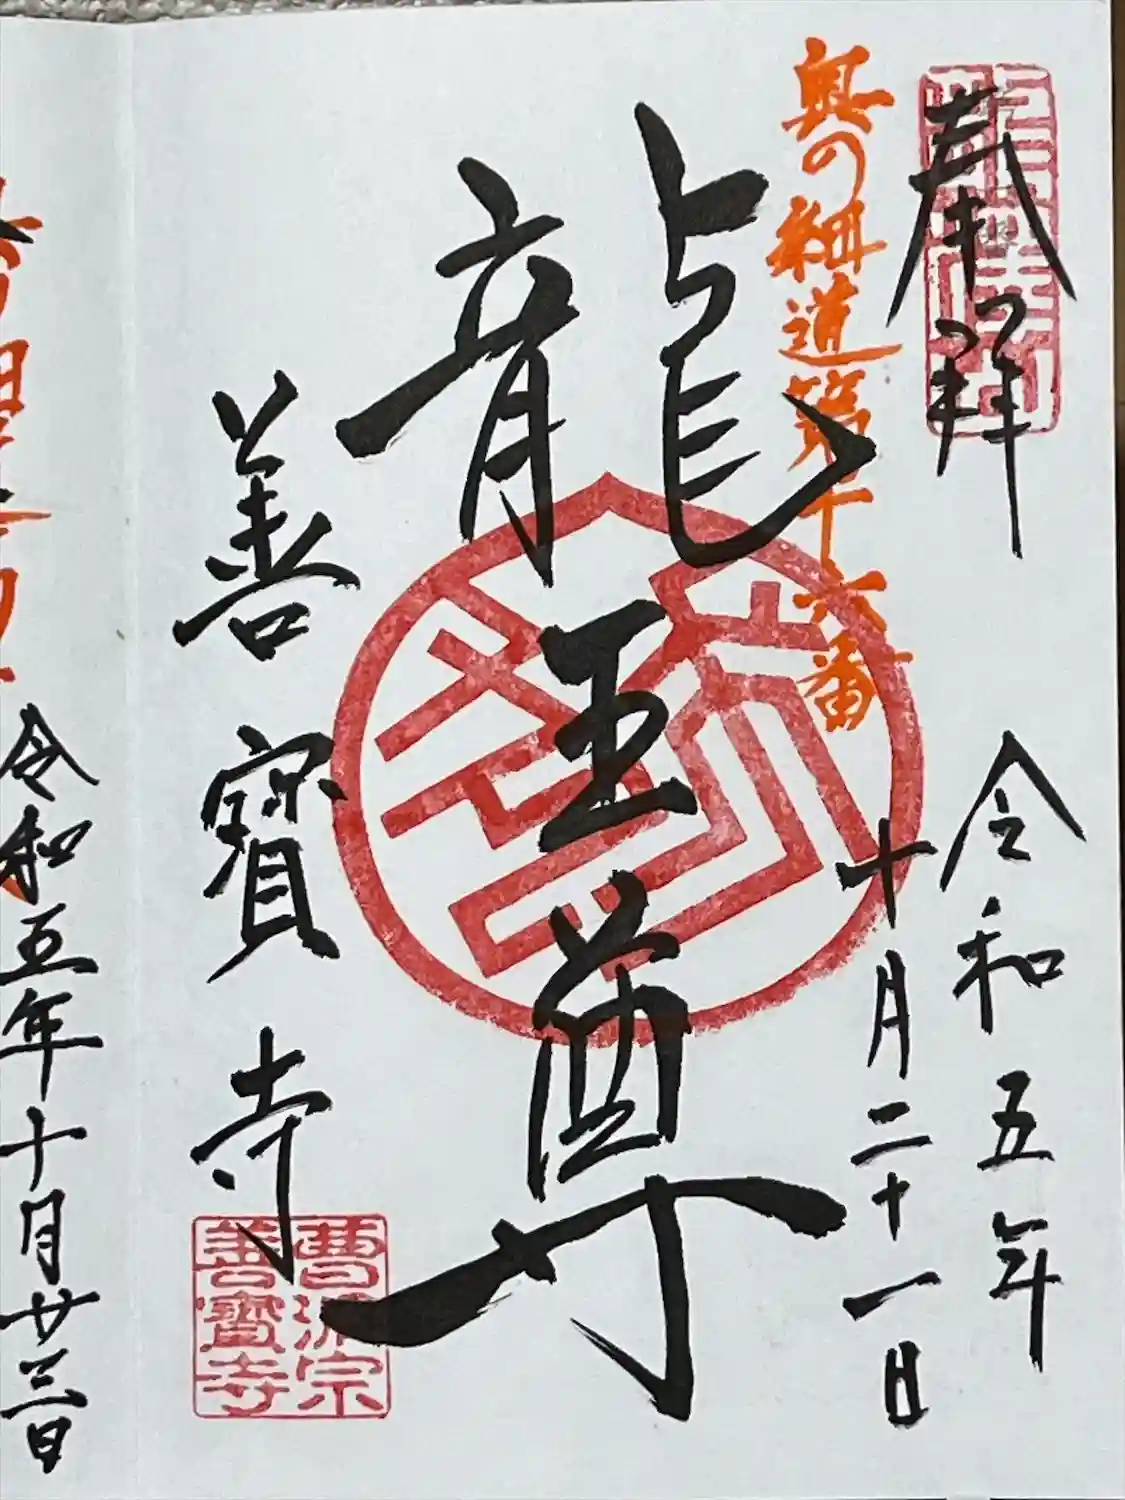 奉拝
令和五年
十月二十一日
奥の細道第十六番
龍王尊
善寳寺
曹洞宗
善寳寺
令和五年十月廿三日